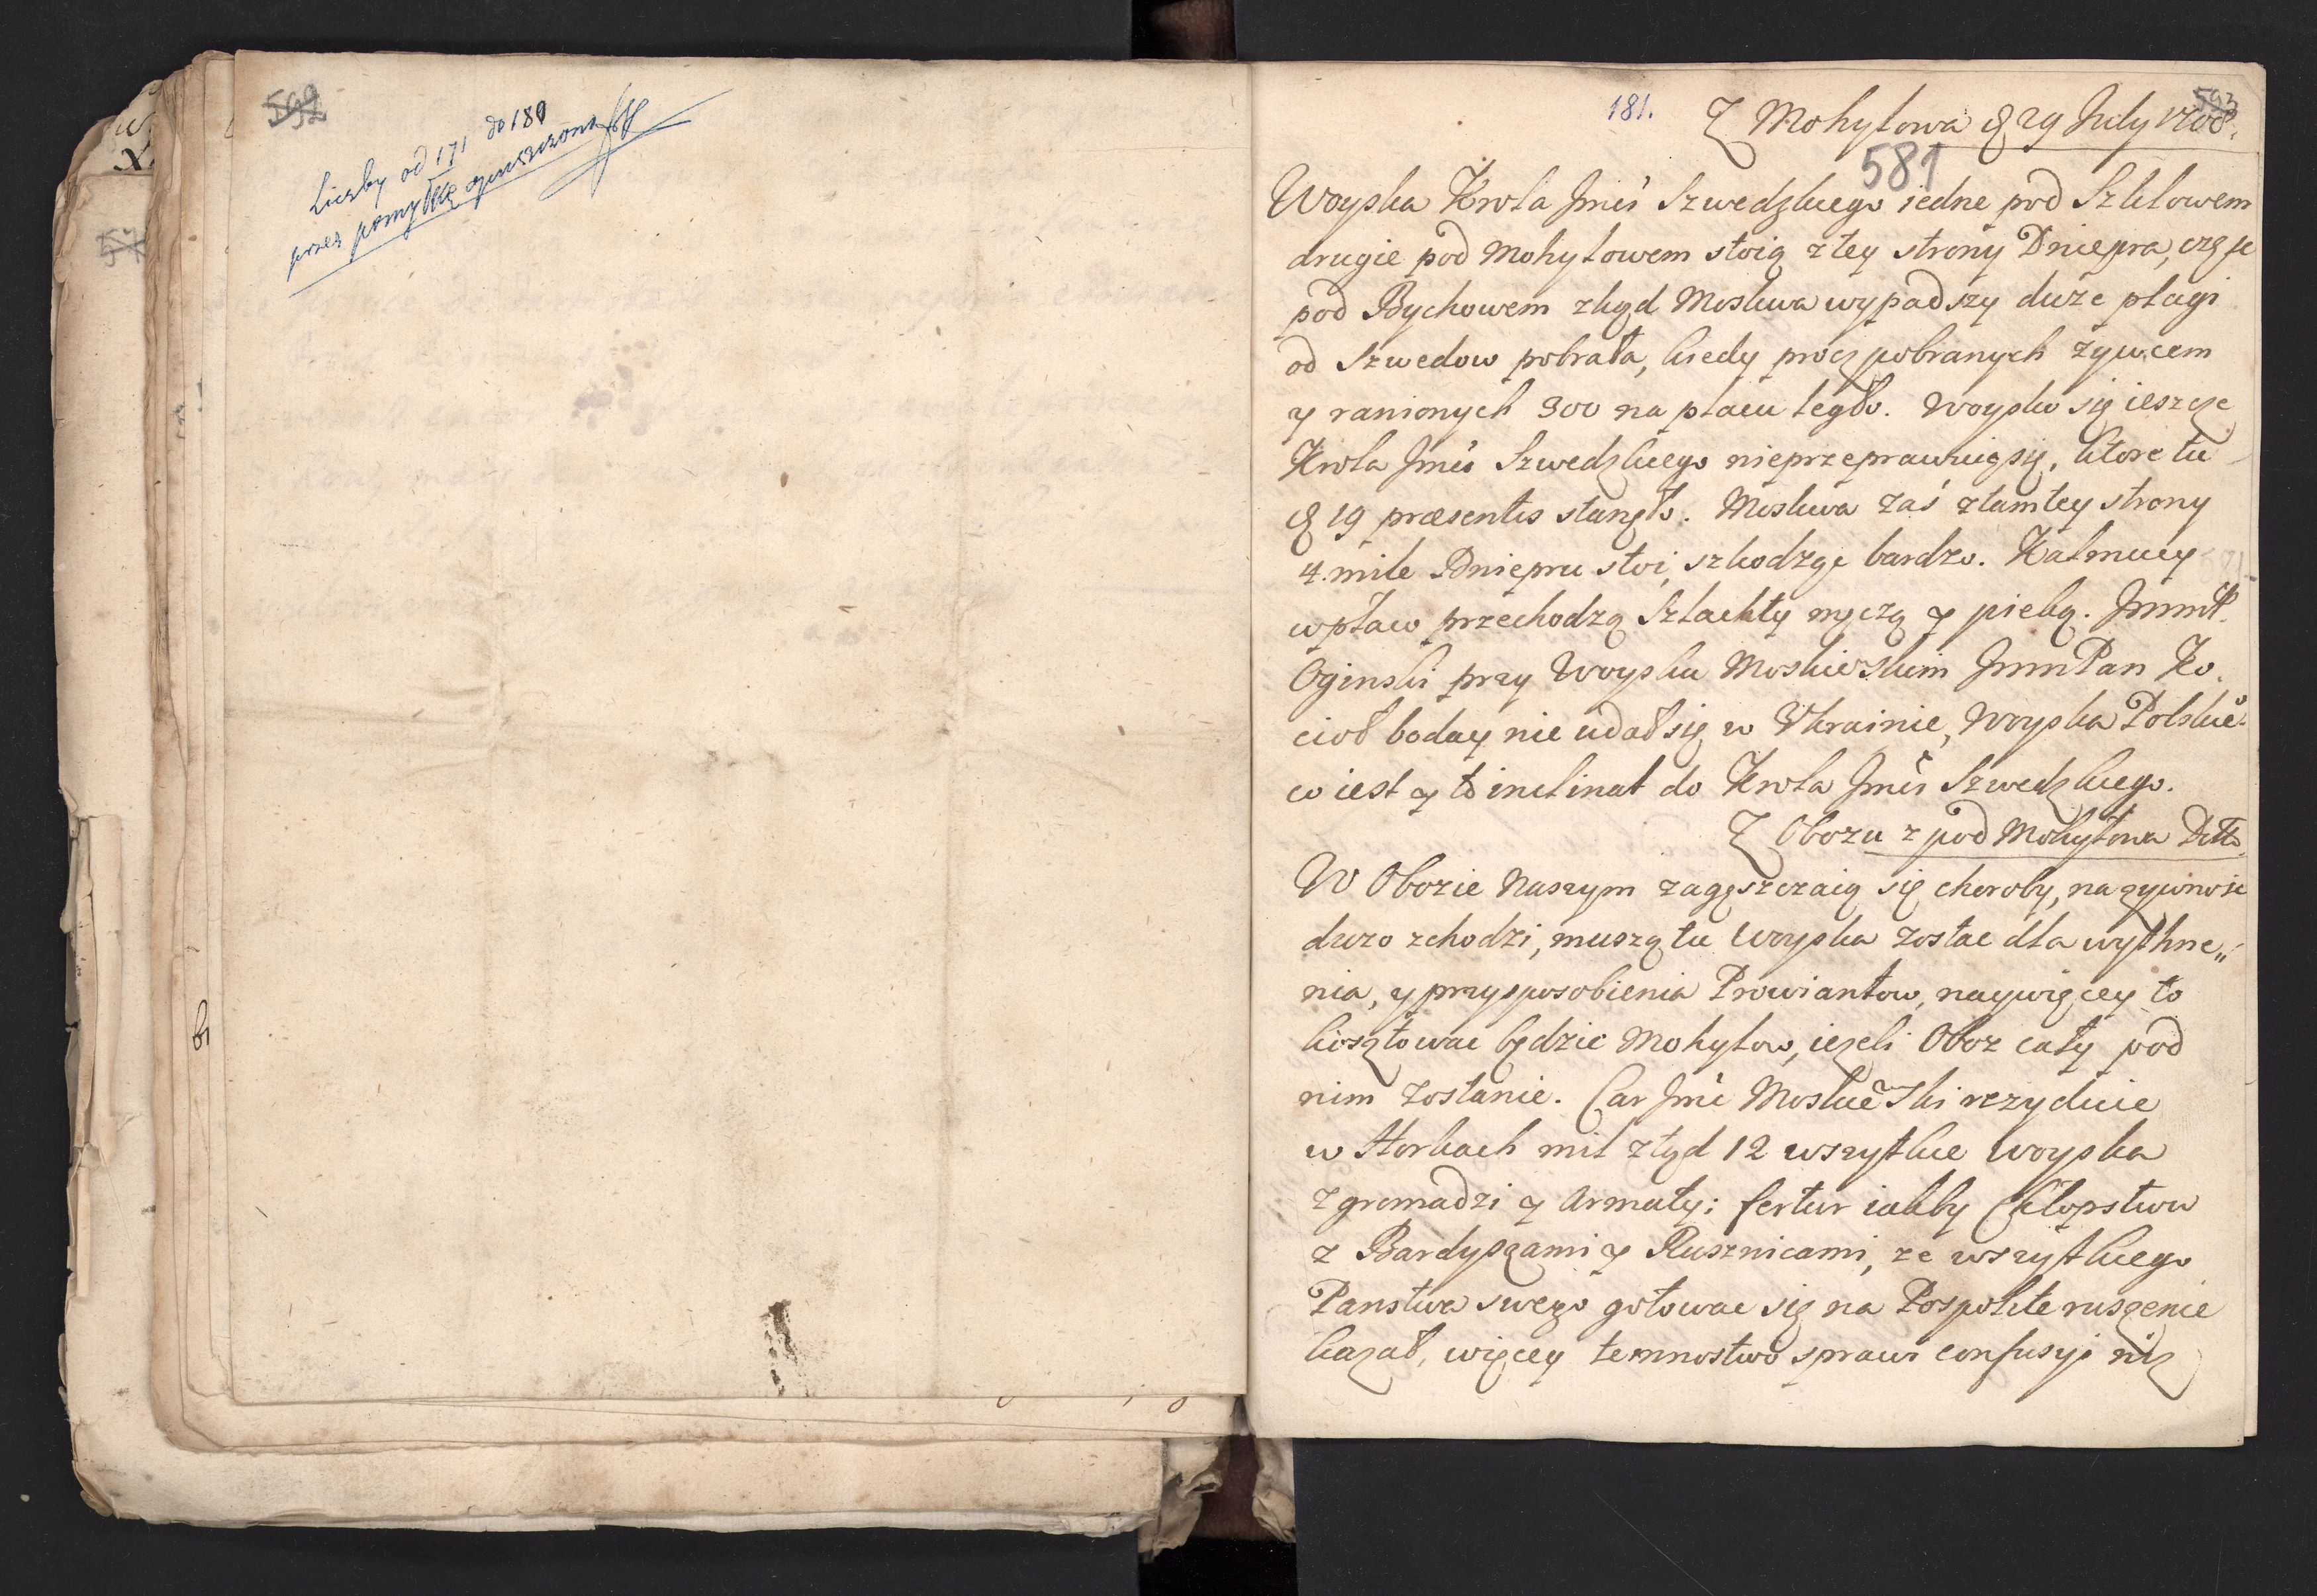 592
Liczby od 171 do 180
przez pomyłkę opuszczono
181.
593
Z Mohylowa d 29 July 1708.
581
Woyska Krola Jmci Szwedzkiego iedne pod Szklowem
drugie pod Mohylowem stoią z tey strony Dniepra, część
pod Bychowem zkąd Moskwa wypadszy duże plagi
od Szwedow pobrała, kiedy procz pobranych żywcem
y ranionych 300 na placu legło. Woysko się ieszcze
Krola Jmci Szwedzkiego nieprzeprawuią się, ktore tu
d 19 præsentis stanęło. Moskwa zaś z tamtey strony
4. mile Dniepru stoi, szkodzę bardzo. Kalmucy
wpław przechodzą Szlachtę męczą y pieką. Jmm
Oginski przy Woysku Moskiewskim JmmPan Ko,
cioł boday nie udał się w Ukrainie, Woyska Polskie
co iest y to inclinat do Krola Jmci Szwedzkiego.
Z Obozu z pod Mohylowa Ditto.
W Obozie Naszym zagęszczaią się choroby, na zywnosc
duzo zchodzi, muszą tu Woyska zostac dla wythne„
nia, y przysposobienia Prowiantow, naywięcey to
kosztowac będzie Mohylow, ieżeli Oboz cały pod
nim zostanie. Car Jmc Moskiewski rezyduie
w Horkach mil ztąd 12 wszytkie Woyska
zgromadzi y Armaty; fertur iakby Chłopstwu
z Bardyszami y Rusznicami, ze wszytkiego
Panstwa swego gotowac się na Pospolite ruszenie
kazał, więcey te mnostwo sprawi confusyi niz